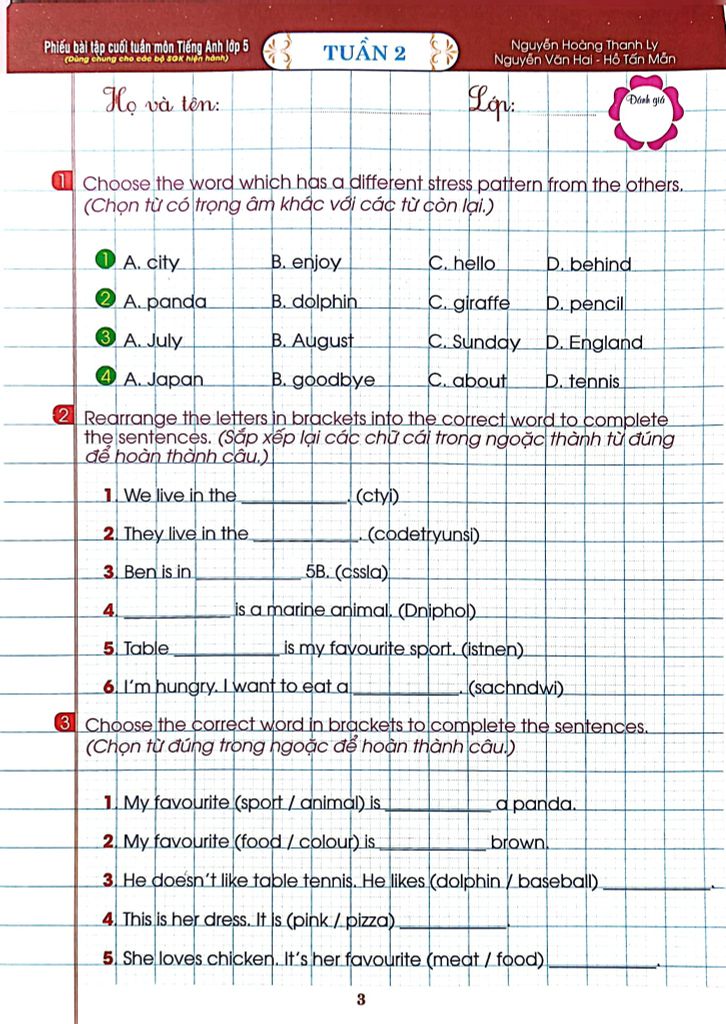 Phiếu bài tập cuối tuần môn Tiếng Anh lớp 5
(Dùng chung cho các bộ SGK hiện hành)
TUẦN 2
Nguyễn Hoàng Thanh Ly
Nguyễn Văn Hai - Hồ Tấn Mẫn
Họ và tên:
Lớp:
Đánh giá
1 Choose the word which has a different stress pattern from the others.
(Chọn từ có trọng âm khác với các từ còn lại.)
1 A. city B. enjoy C. hello D. behind
2 A. panda B. dolphin C. giraffe D. pencil
3 A. July B. August C. Sunday D. England
4 A. Japan B. goodbye C. about D. tennis
2 Rearrange the letters in brackets into the correct word to complete
the sentences. (Sắp xếp lại các chữ cái trong ngoặc thành từ đúng
để hoàn thành câu.)
1. We live in the __________. (ctyi)
2. They live in the __________. (codetryunsi)
3. Ben is in __________ 5B. (cssla)
4. __________ is a marine animal. (Dniphol)
5. Table __________ is my favourite sport. (istnen)
6. I'm hungry. I want to eat a __________. (sachndwi)
3 Choose the correct word in brackets to complete the sentences.
(Chọn từ đúng trong ngoặc để hoàn thành câu.)
1. My favourite (sport / animal) is __________ a panda.
2. My favourite (food / colour) is __________ brown.
3. He doesn't like table tennis. He likes (dolphin / baseball) __________.
4. This is her dress. It is (pink / pizza) __________.
5. She loves chicken. It's her favourite (meat / food) __________.
3